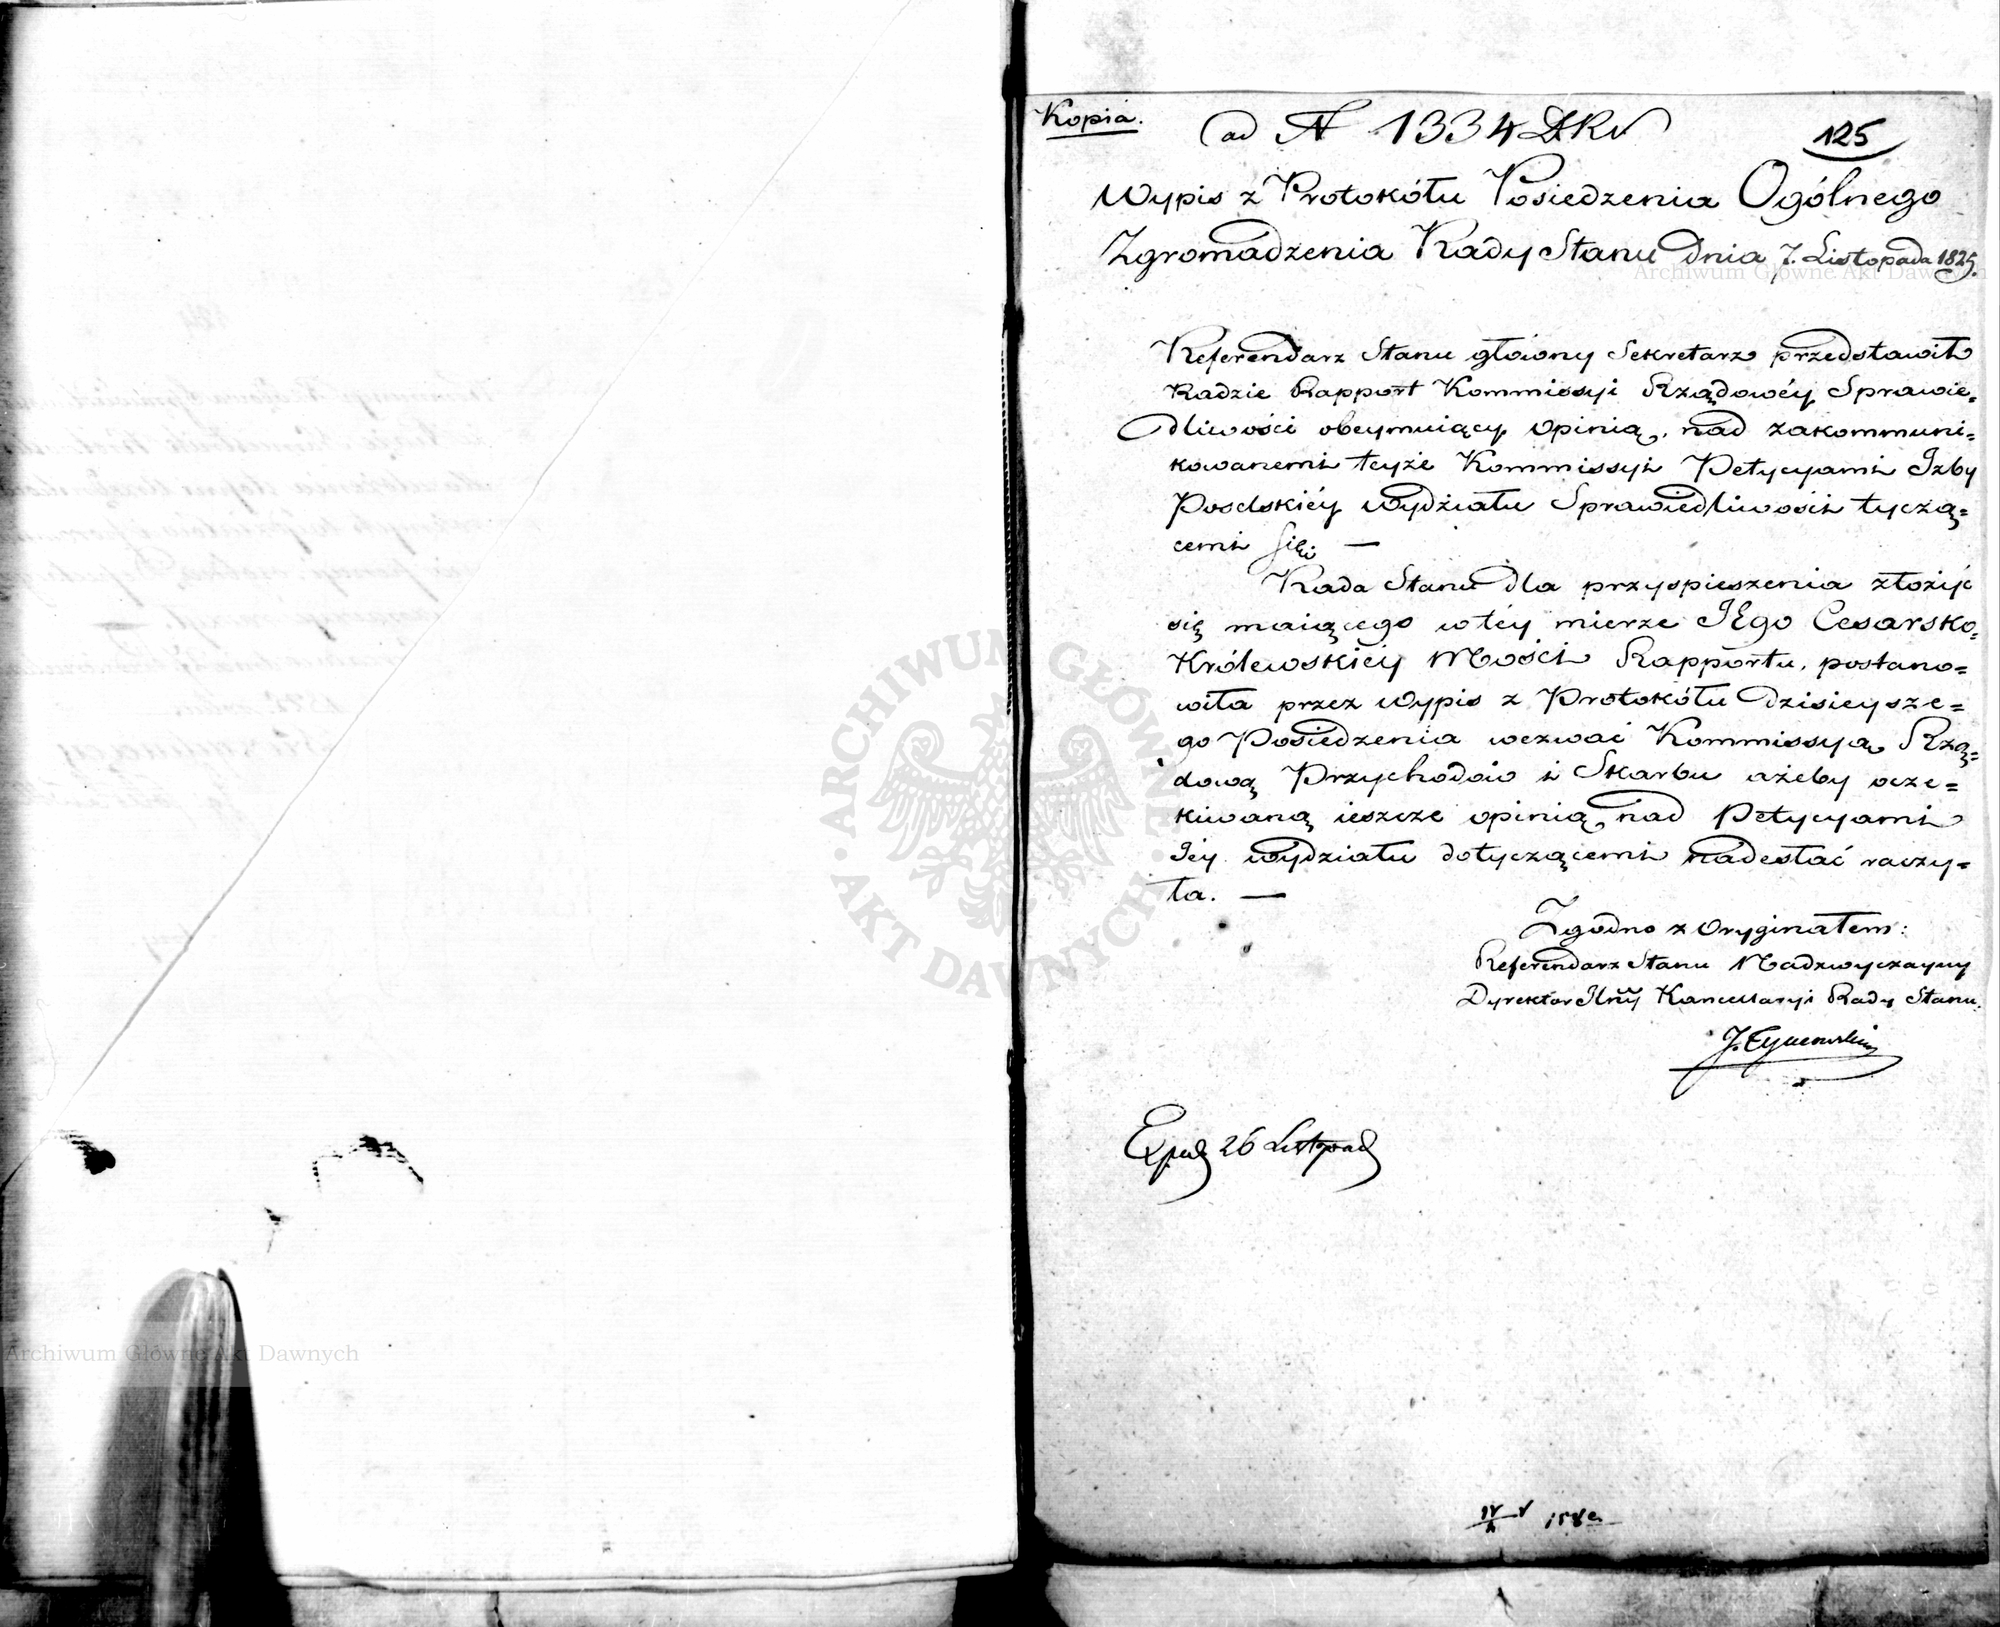 Kopia.
ad N 1334 DKS
125
Wypis z Protokółu Posiedzenia Ogólnego
Zgromadzenia Rady Stanu dnia 7. Listopada 1825.
Referendarz Stanu główny Sekretarz przedstawił
Radzie Rapport Kommissyi Rządowéy Sprawie=
dliwości obeymuiący opinią, nad zakommuni=
kowanemi teyże Kommissyi Petycyami Izby
Poselskiéy wydziału Sprawiedliwości tyczą=
cemi się. —
Rada Stanu dla przyspieszenia złożyć
się maiącego w téy mierze JEgo Cesarsko=
Królewskiéy Mości Rapportu, postano=
wiła przez wypis z Protokółu dzisieysze=
go Posiedzenia wezwać Kommissyą Rzą=
dową Przychodów i Skarbu ażeby ocze=
kiwaną ieszcze opinią nad Petycyami
Jéy wydziału dotyczącemi nadesłać raczy=
ła. —
Zgodno z Oryginałem:
Referendarz Stanu Nadzwyczayny
Dyrektor Kancellaryi Rady Stanu.
Exped 26 Listopad
Archiwum Główne Akt Dawnych
Archiwum Główne Akt Dawnych
ARCHIWUM GŁÓWNE · AKT DAWNYCH ·